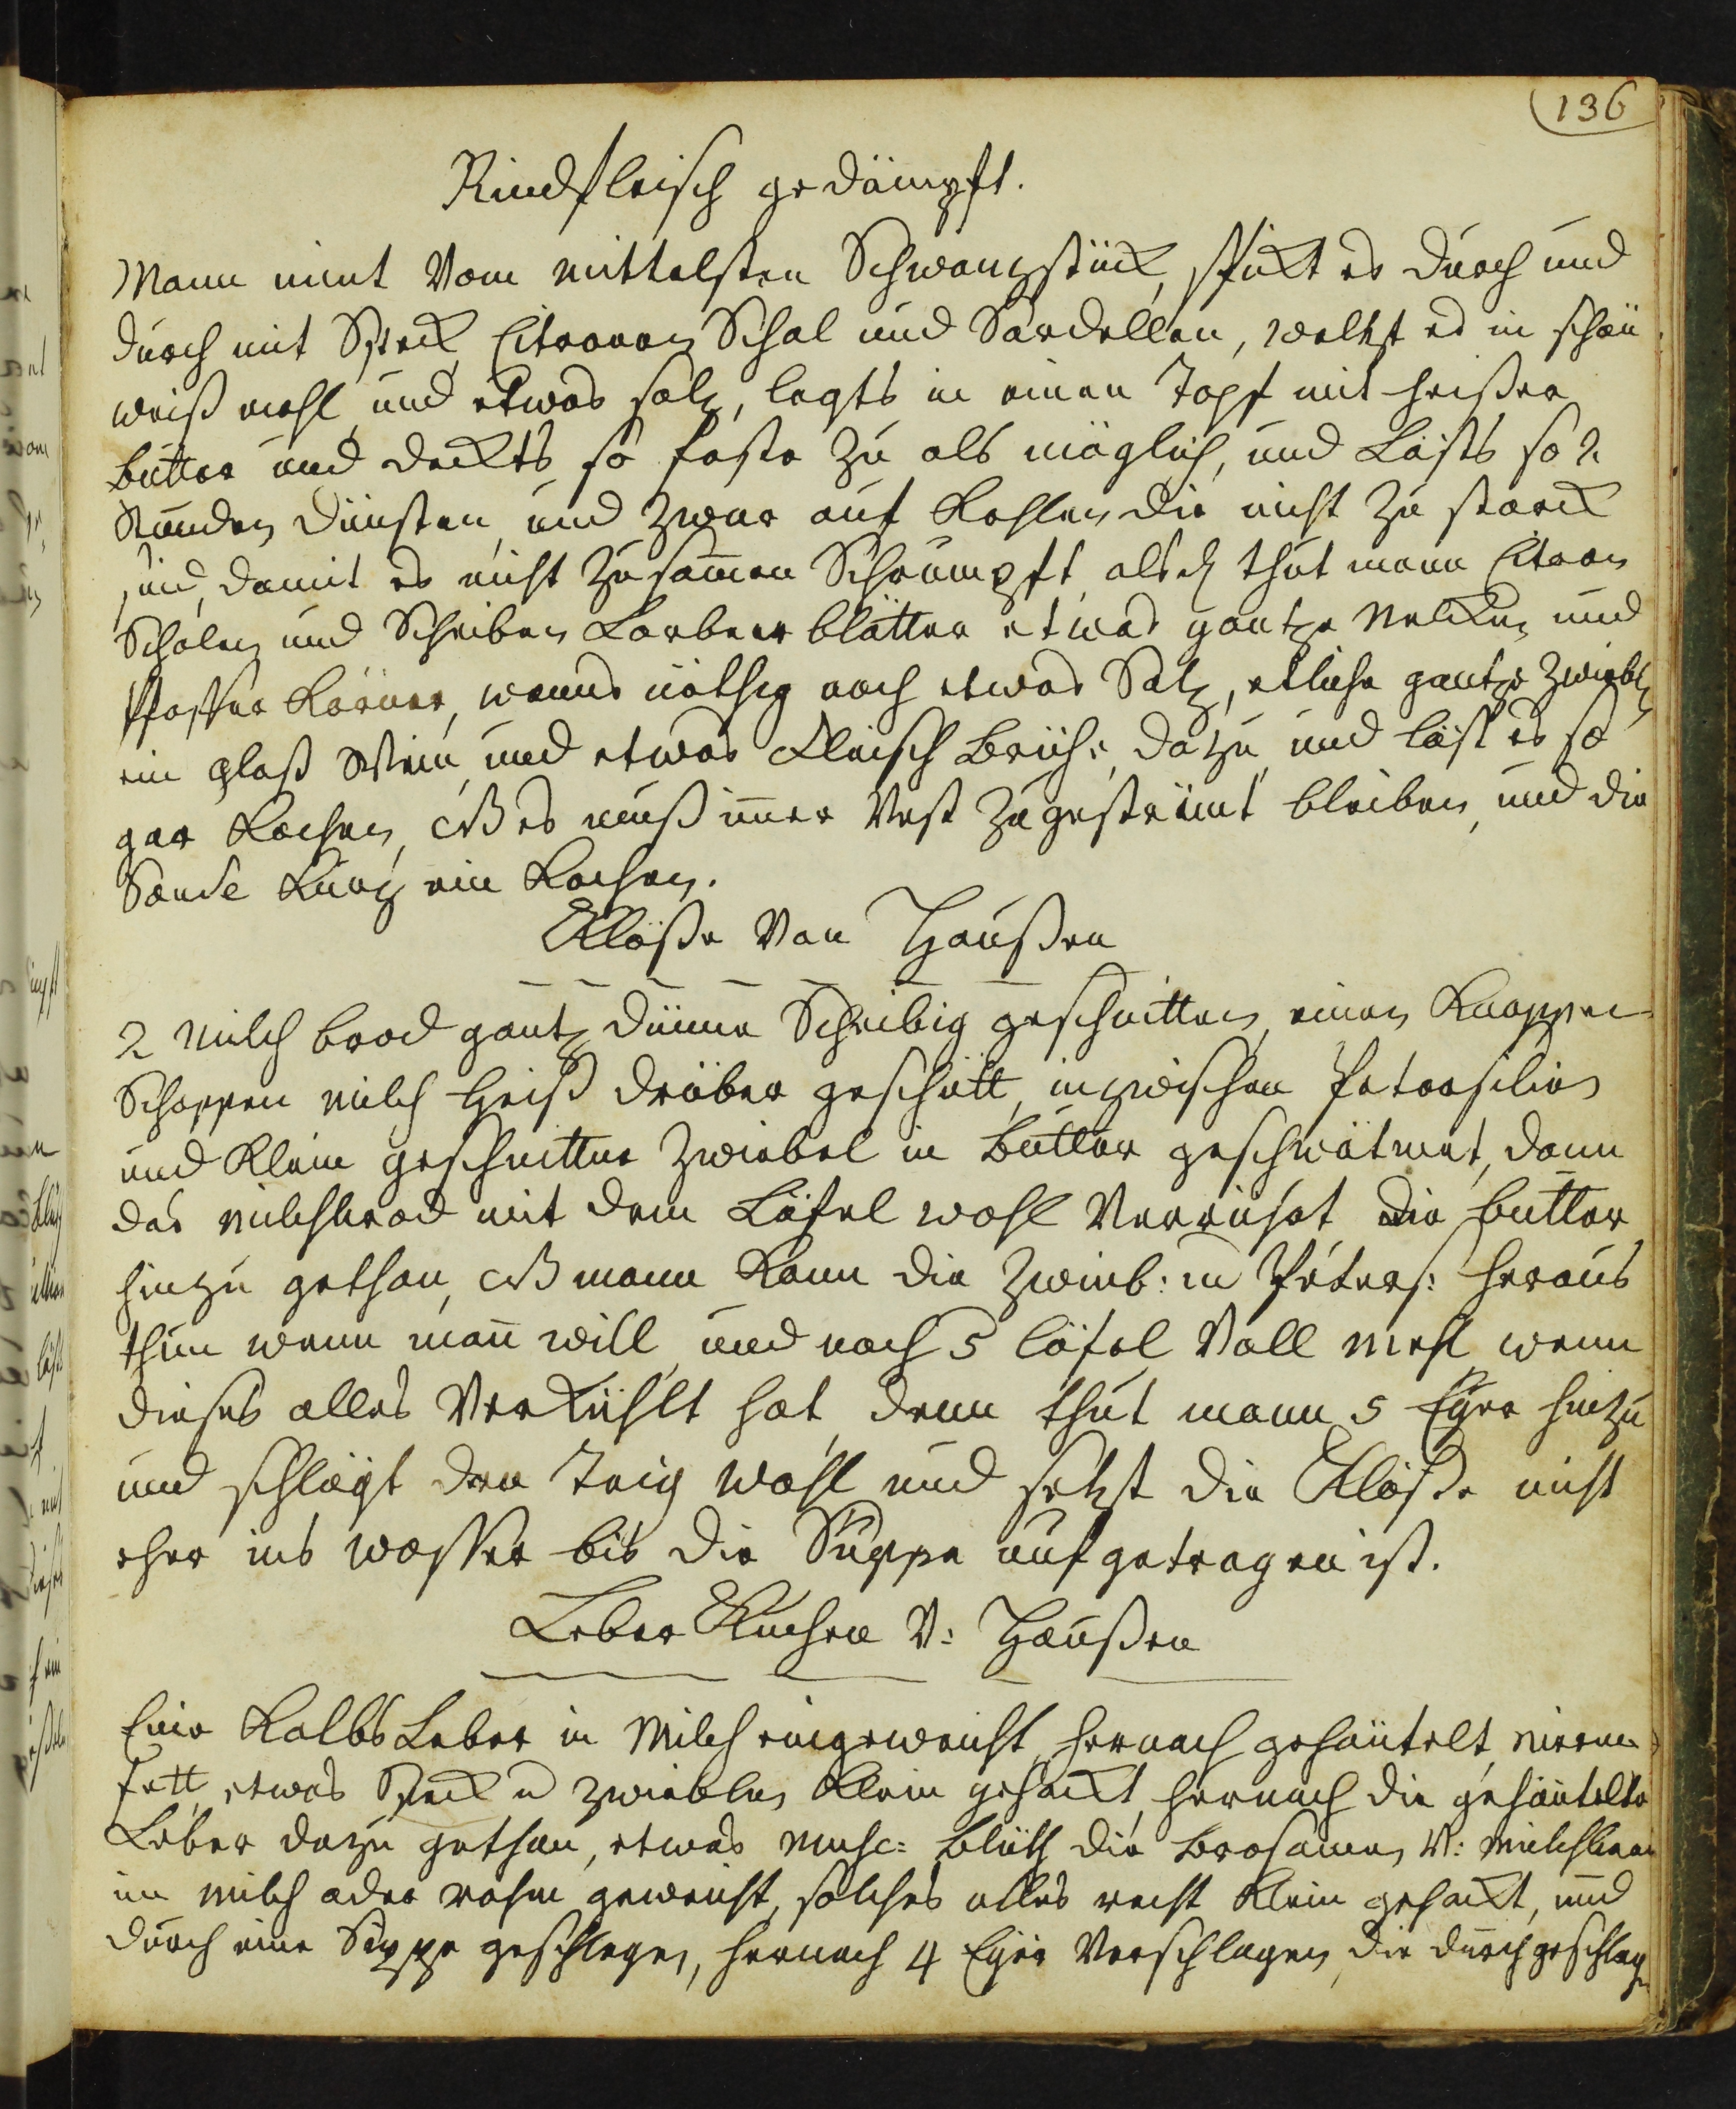 136
Rindfleisch gedämpft.
Mann nimt Vom mittelsten Schwanzstück, spickt es durch und
durch mit Speck Citronen Schal und Sardellen, weltzt es in schön
weiß mehl und etwas saltz, legts in einen Topf mit heißer
butter und deckts so feste zu als möglich, und Läßts so 2
Stunden dünsten und zwar auf Kohlen die nicht zu starck
sind, damit es nicht zusammen Schrumpft, alsdn thut mann Citron
Schalen und Scheiben Lorbeerblätter etwas gantze Nelcken und
Pfeffer Körner, wanns nöthig noch etwas Saltz, etliche gantze Zwiebln
ein glaß Wein und etwas Fleisch Brühe, dazu und läst es so
gar Kochen, NB es muß immer Vest zugestrümt bleiben, und die
Sauce Kurtz ein Kochen.
Klöße Von Haußen
2 Milch brod gantz dünne Scheibig geschnitten, einen Knappen
Schoppen milch heiß drüber geschütt, inzwischen Petersilien
und Klein geschnittne Zwiebel in Butter geschwätmet, dann
das milchbrod mit dem Löfel wohl Verrührt, die butter
hinzu gethan, NB mann Kann die Zwieb: u Peters: heraus
thun wenn man will, und noch 5 löfel Voll mehl wenn
dieses alles Verkühlt hat, denn thut mann 5 Eyer hinzu
und schlägt den Teig wohl und setzt die Klöße nicht
eher ins wasser bis die Suppe aufgetragen ist.
Leber Kuchen V: Haußen
Eine Kalbs Leber in Milch eingeweicht, hernach gehäutelt, nieren
fett, etwas Speck u zwieblen Klein gehackt, hernach die gehäutelte
Leber dazu gethan, etwas musc: blüth die Brosamen V: Milchbrod
in milch oder rahm geweicht, solches alles recht Klein gehackt, und
durch eine Seyhe geschlagen, hernach 4 Eyer Verschlagen, die durchgeschlagn